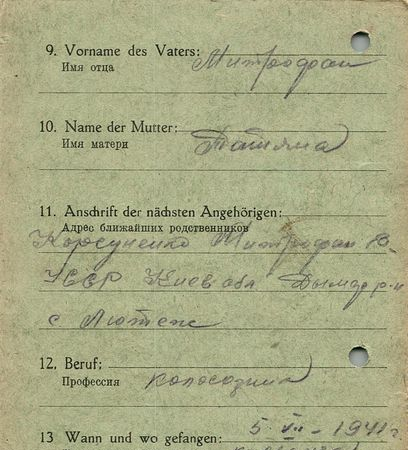 9. Vorname des Vaters: Митрофан
Имя отца
10. Name der Mutter: Татьяна
Имя матери
11. Anschrift der nächsten Angehörigen:
Адрес ближайших родственников
Корсуненко Митрофан
УССР Киев обл Дымар р-н
с Лютеж
12. Beruf: колхозник
Профессия
13 Wann und wo gefangen: 5 VII - 1941 г